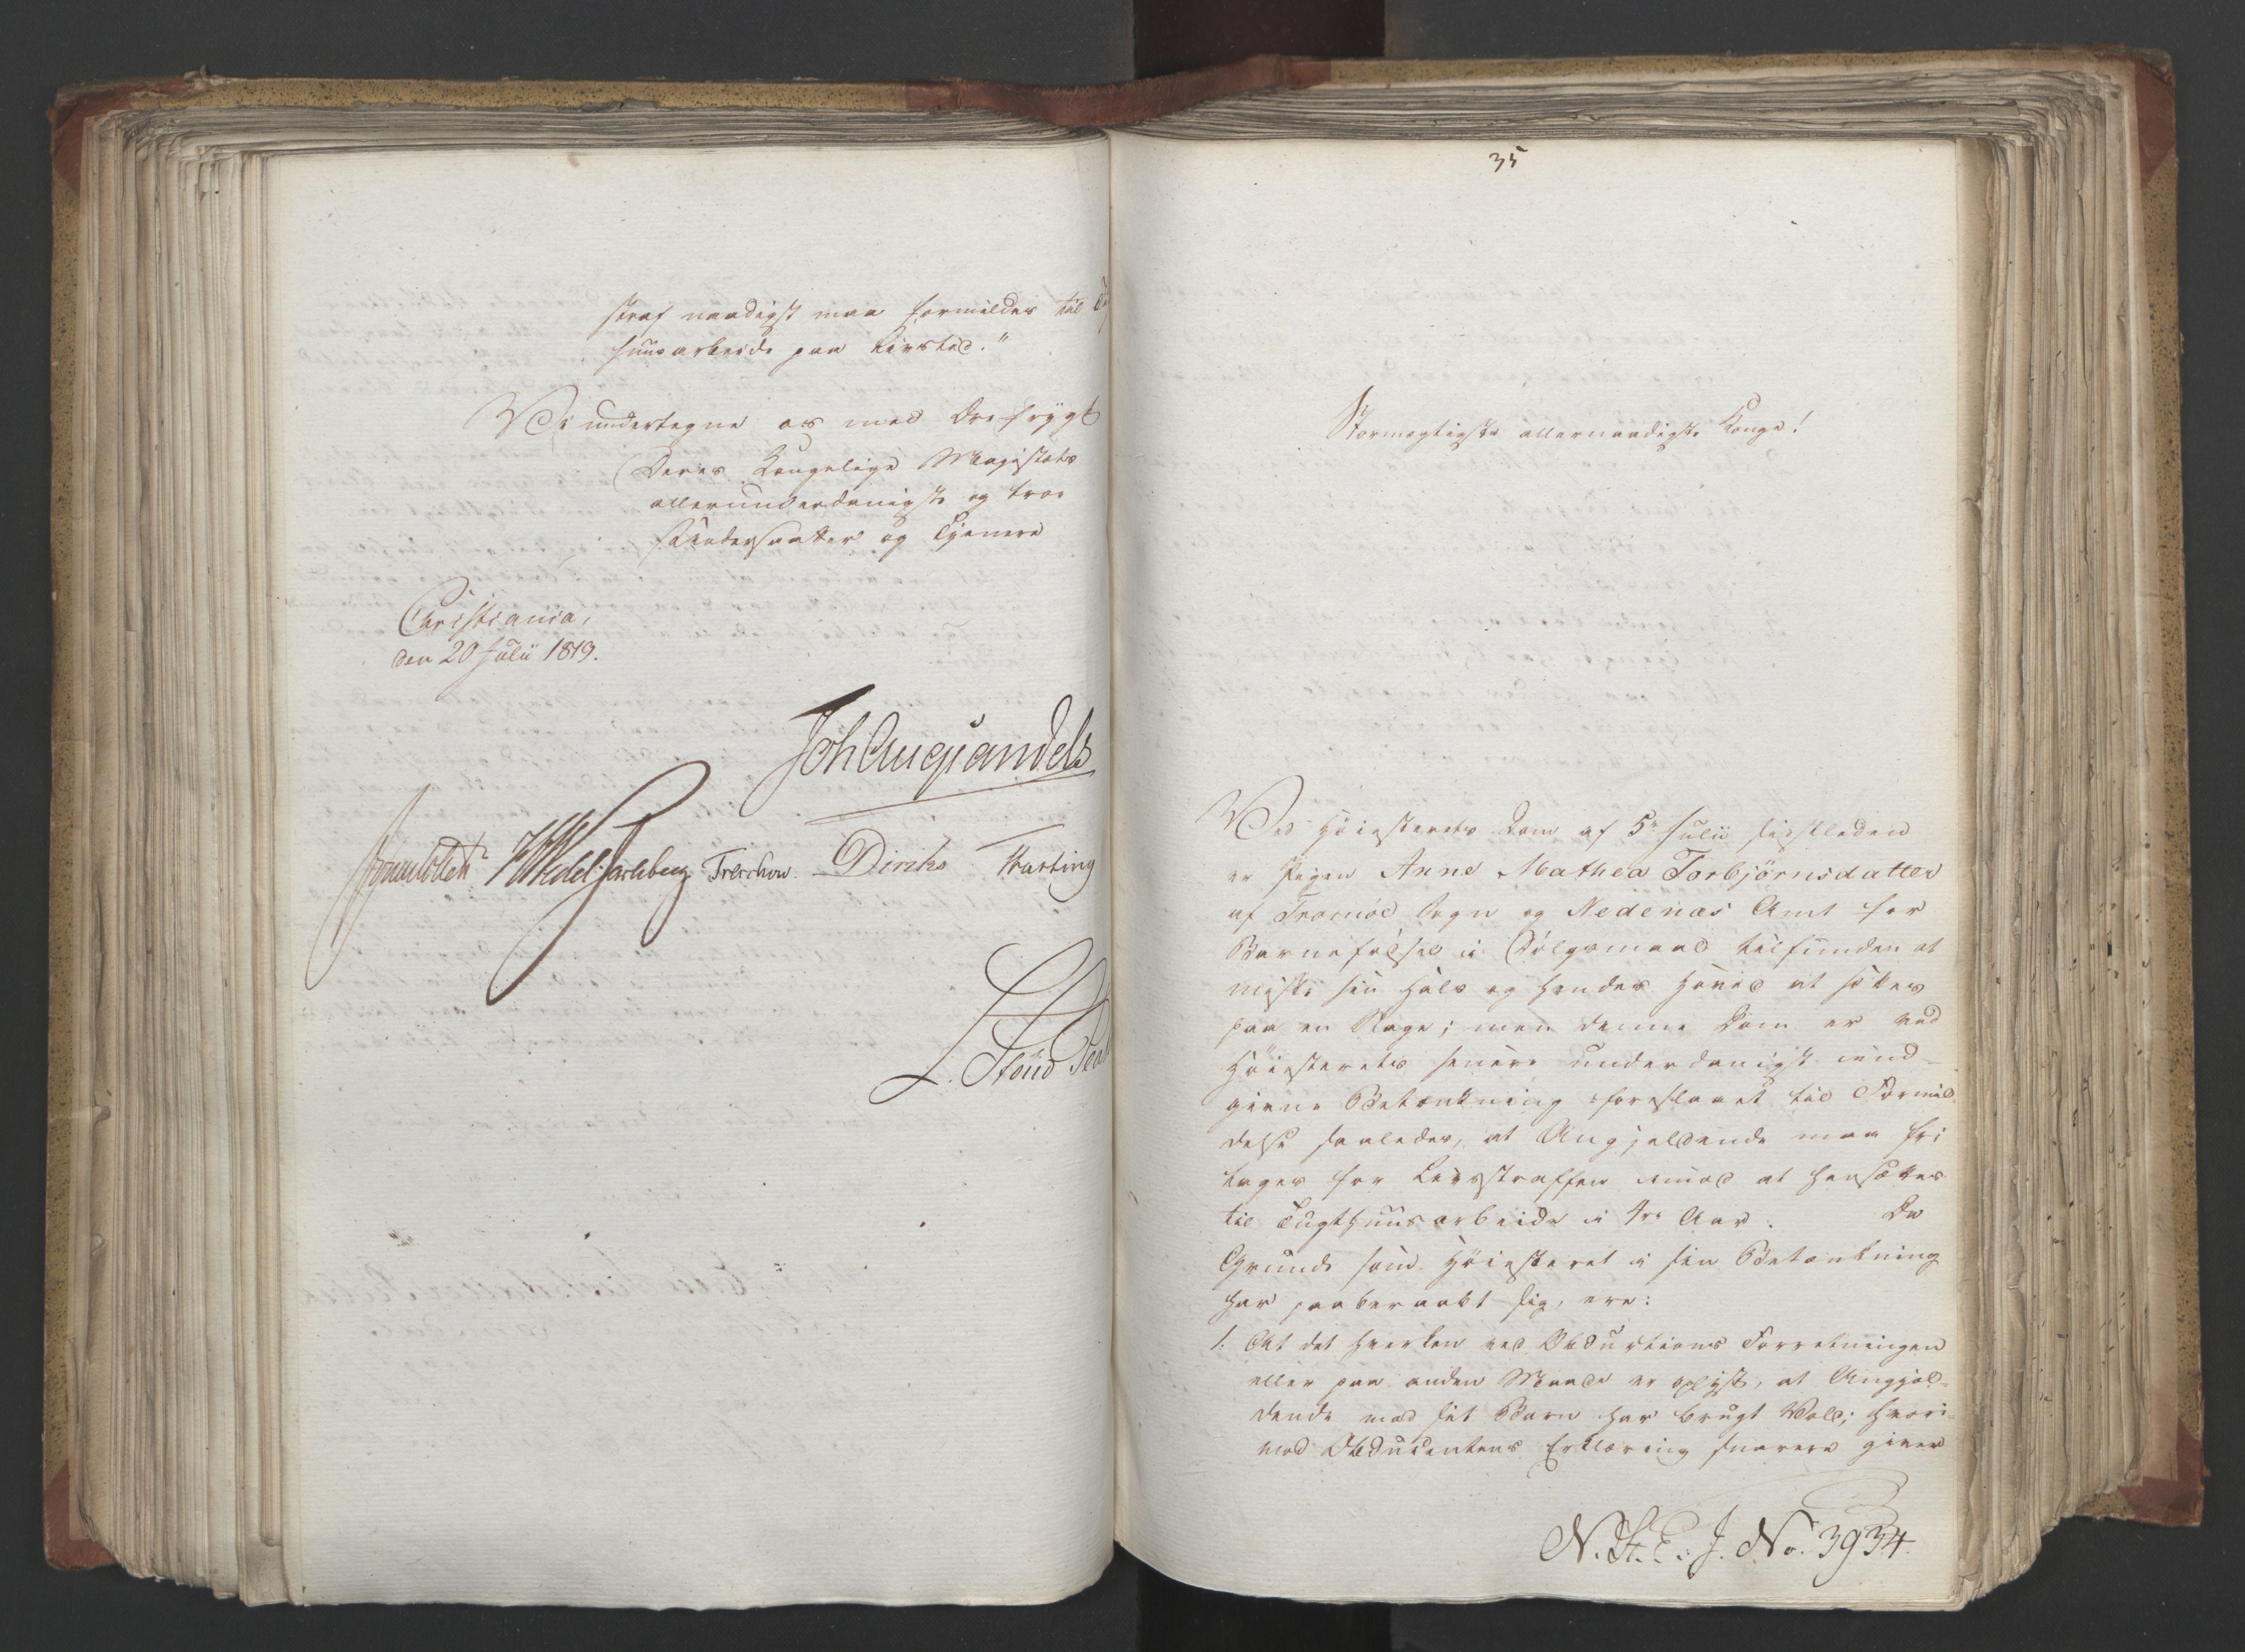 straf naadigst maa formildes til
huusarbeide paa Livstid."
Vi undertegne os med Ærefrygt
Deres Kongelige Majestæts
allerunderdanigste og troe
Undersaatter og Tjenere
Christiania,
den 20 Julii 1819.
Joh Aug Sandels
Sommerhielm HWedel Jarlsberg Treschow. Diriks Fasting
L. Stoud Plat
35
Stormægtigste allernaadigste Konge!
Ved Høiesterets Dom af 5te Julii sidstleden
er Pigen Anne Mathea Torbjörnsdatter
af Tromöe Sogn og Nedenæs Amt for
Barnefødsel i Dølgsmaal tilfunden at
miste sin Hals og hendes Hoved at sættes
paa en Stage; men denne Dom er ved
Høiesterets senere underdanigst ind-
givne Betænkning foreslaaet til Formil-
delse saaledes, at Angjeldende maa fri
tages for Livsstraffen imod at hensættes
til Tugthuusarbeide i 4re Aar. De
Grunde som Høiesteret i sin Betænkning
har paaberaabt sig, ere:
1. At det hverken ved Obductions Forretningen
eller paa anden Maade er oplyst, at Angjel-
dende mod sit Barn har brugt Vold; hvori-
mod Obducentens Erklæring snarere giver
N. St. E. J. No. 3934.